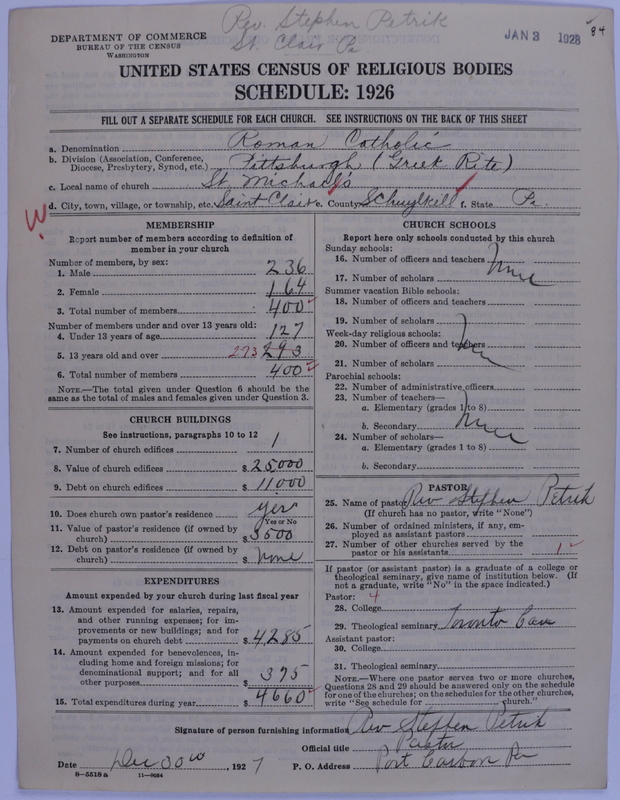 Rev. Stephen Petrik
St. Clair Pa
JAN 3 1928
84
DEPARTMENT OF COMMERCE
BUREAU OF THE CENSUS
WASHINGTON
UNITED STATES CENSUS OF RELIGIOUS BODIES
SCHEDULE: 1926
FILL OUT A SEPARATE SCHEDULE FOR EACH CHURCH. SEE INSTRUCTIONS ON THE BACK OF THIS SHEET
a. Denomination Roman Catholic
b. Division (Association, Conference, Diocese, Presbytery, Synod, etc.) Pittsburgh (Griek Rite)
c. Local name of church St. Michael's
d. City, town, village, or township, etc. Saint Clair e. County Schuylkill f. State Pa.
W
MEMBERSHIP
Report number of members according to definition of
member in your church
Number of members, by sex:
1. Male 236
2. Female 164
3. Total number of members 400
Number of members under and over 13 years old:
4. Under 13 years of age 127
5. 13 years old and over 273 293
6. Total number of members 400
NOTE.—The total given under Question 6 should be
same as the total of males and females given under Question 3.
CHURCH BUILDINGS
See instructions, paragraphs 10 to 12
7. Number of church edifices 1
8. Value of church edifices $ 25000
9. Debt on church edifices $ 11000
10. Does church own pastor's residence yes
Yes or No
11. Value of pastor's residence (if owned by
church) $ 3500
12. Debt on pastor's residence (if owned by
church) $ None
EXPENDITURES
Amount expended by your church during last fiscal year
13. Amount expended for salaries, repairs,
and other running expenses; for im-
provements or new buildings; and for
payments on church debt $ 4285
14. Amount expended for benevolences, in-
cluding home and foreign missions; for
denominational support; and for all
other purposes $ 375
15. Total expenditures during year $ 4660
CHURCH SCHOOLS
Report here only schools conducted by this church
Sunday schools:
16. Number of officers and teachers
17. Number of scholars None
Summer vacation Bible schools:
18. Number of officers and teachers
19. Number of scholars
Week-day religious schools:
20. Number of officers and teachers
21. Number of scholars
Parochial schools:
22. Number of administrative officers
23. Number of teachers—
a. Elementary (grades 1 to 8)
b. Secondary None
24. Number of scholars—
a. Elementary (grades 1 to 8)
b. Secondary
PASTOR
25. Name of pastor Rev Stephen Petrik
(If church has no pastor, write "None")
26. Number of ordained ministers, if any, em-
ployed as assistant pastors
27. Number of other churches served by the
pastor or his assistants 1
If pastor (or assistant pastor) is a graduate of a college or
theological seminary, give name of institution below. (If
not a graduate, write "No" in the space indicated.)
Pastor: 4
28. College
29. Theological seminary Toronto Can
Assistant pastor:
30. College
31. Theological seminary
NOTE.—Where one pastor serves two or more churches,
Questions 28 and 29 should be answered only on the schedule
for one of the churches; on the schedules for the other churches,
write "See schedule for church."
Signature of person furnishing information Rev Stephen Petrik
Official title Pastor
Date Dec 30, 1927 P. O. Address Port Carbon Pa
8—5518 a 11—9084